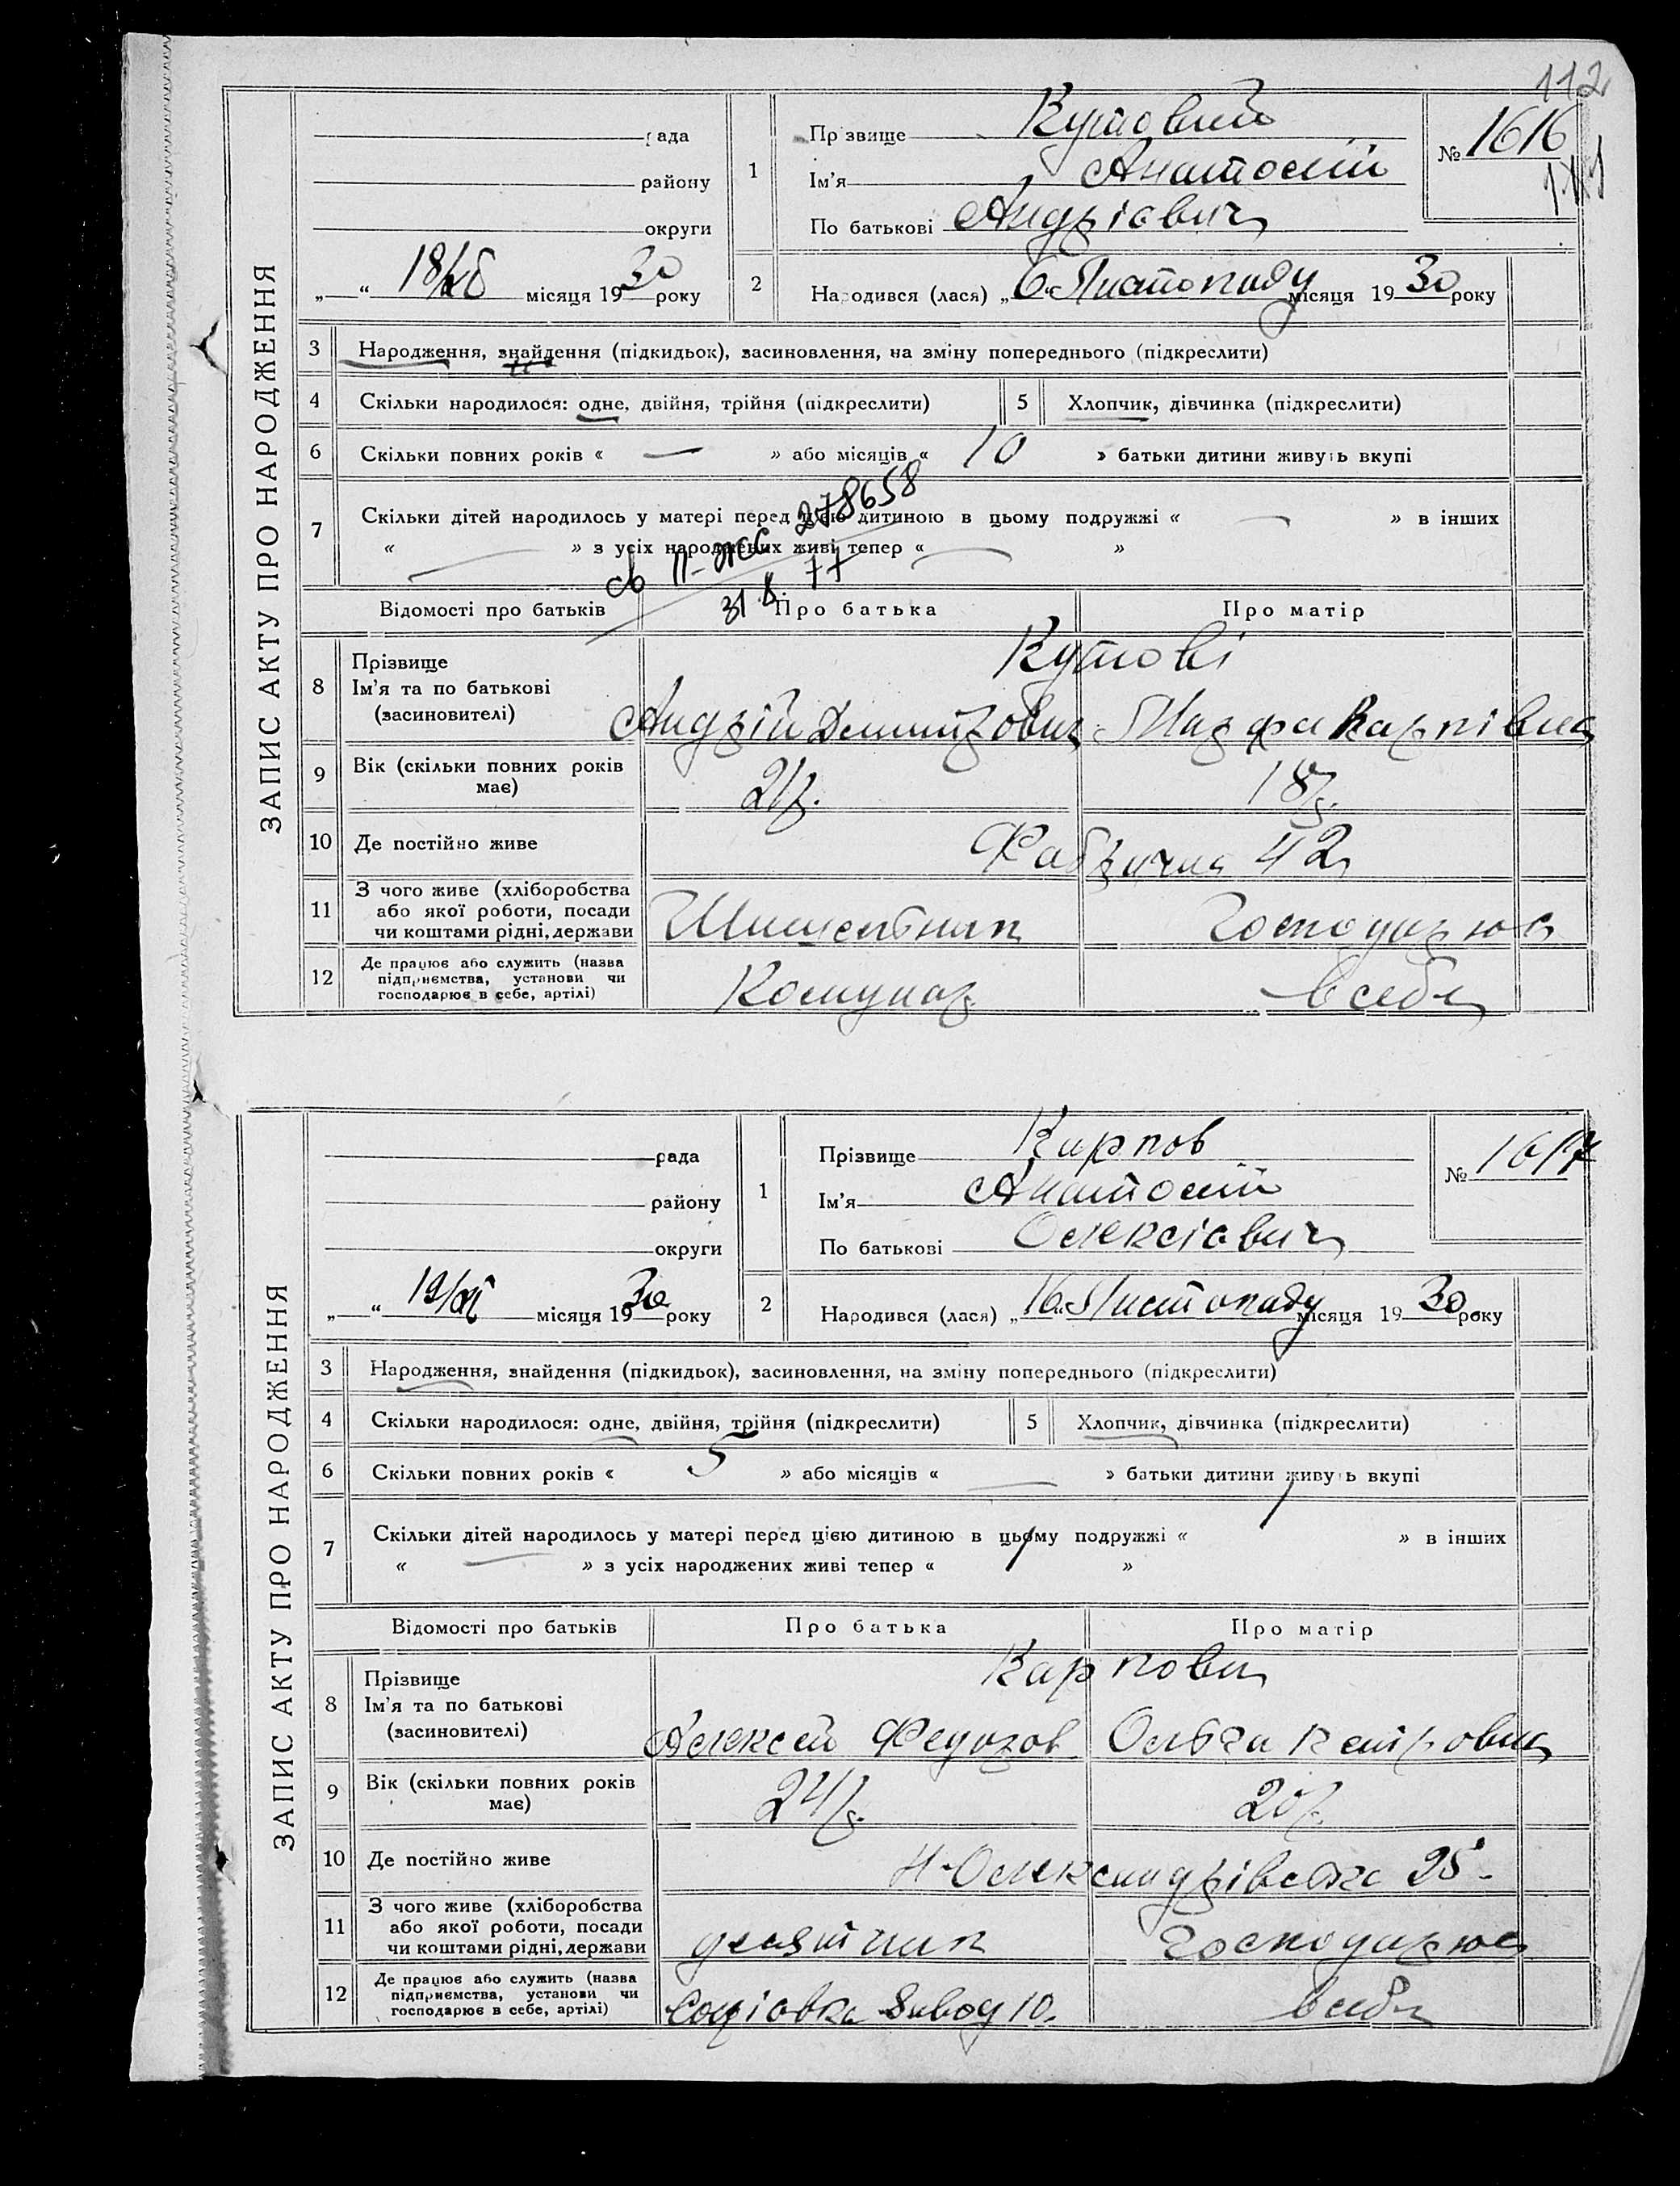 112
рада
району
округи
„ “ 18/XI місяця 1930 року
1
Прізвище Кутовий
Ім'я Анатолій
По батькові Андрієвич
№ 1616
2
Народився (лася) „6“ Листопаду місяця 1930 року
ЗАПИС АКТУ ПРО НАРОДЖЕННЯ
3 Народження, знайдення (підкидьок), засиновлення, на зміну попереднього (підкреслити)
4 Скільки народилося: одне, двійня, трійня (підкреслити) 5 Хлопчик, дівчинка (підкреслити)
6 Скільки повних років « — » або місяців « 10 » батьки дитини живуть вкупі
7 Скільки дітей народилось у матері перед цією дитиною в цьому подружжі « — » в інших
« — » з усіх народжених живі тепер « — »
св II-ЖС 278658
31 X 77
Відомості про батьків Про батька Про матір
8 Прізвище
Ім'я та по батькові
(засиновителі)
Кутові
Андрій Дмитрович Марфа Карпівна
9 Вік (скільки повних років
має)
21р. 18р.
10 Де постійно живе Фабрична 42
11 З чого живе (хліборобства
або якої роботи, посади
чи коштами рідні, держави
Господарює
12 Де працює або служить (назва
підприємства, установи чи
господарює в себе, артілі)
Комунар в себе
рада
району
округи
„ “ 19/XI місяця 1930 року
1
Прізвище Карпов
Ім'я Анатолій
По батькові Олексієвич
№ 1617
2
Народився (лася) „16“ Листопаду місяця 1930 року
ЗАПИС АКТУ ПРО НАРОДЖЕННЯ
3 Народження, знайдення (підкидьок), засиновлення, на зміну попереднього (підкреслити)
4 Скільки народилося: одне, двійня, трійня (підкреслити) 5 Хлопчик, дівчинка (підкреслити)
6 Скільки повних років « 5 » або місяців « — » батьки дитини живуть вкупі
7 Скільки дітей народилось у матері перед цією дитиною в цьому подружжі « 1 » в інших
« — » з усіх народжених живі тепер « 1 »
Відомості про батьків Про батька Про матір
8 Прізвище
Ім'я та по батькові
(засиновителі)
Карпови
Алексей Федоров Ольга Петровна
9 Вік (скільки повних років
має)
24р. 20р.
10 Де постійно живе Н-Олександрівська 25
11 З чого живе (хліборобства
або якої роботи, посади
чи коштами рідні, держави
десятник Господарює
12 Де працює або служить (назва
підприємства, установи чи
господарює в себе, артілі)
завод 10. в себе